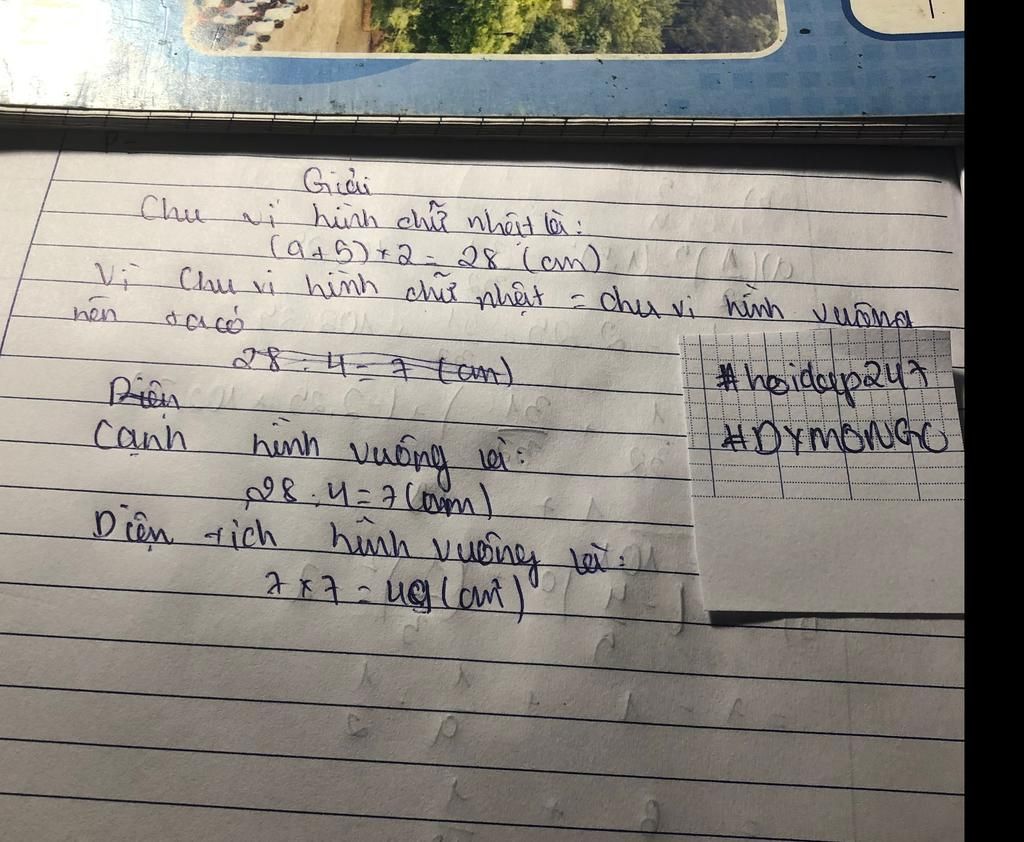 Giải
Chu vi hình chữ nhật là:
(9+5)×2=28 (cm)
Vì Chu vi hình chữ nhật = chu vi hình vuông
nên ta có
28:4=7 (cm)
Diện
Cạnh hình vuông là:
28:4=7(cm)
Diện tích hình vuông là:
7×7=49(cm²)
#hoidap247
#DYMONGO